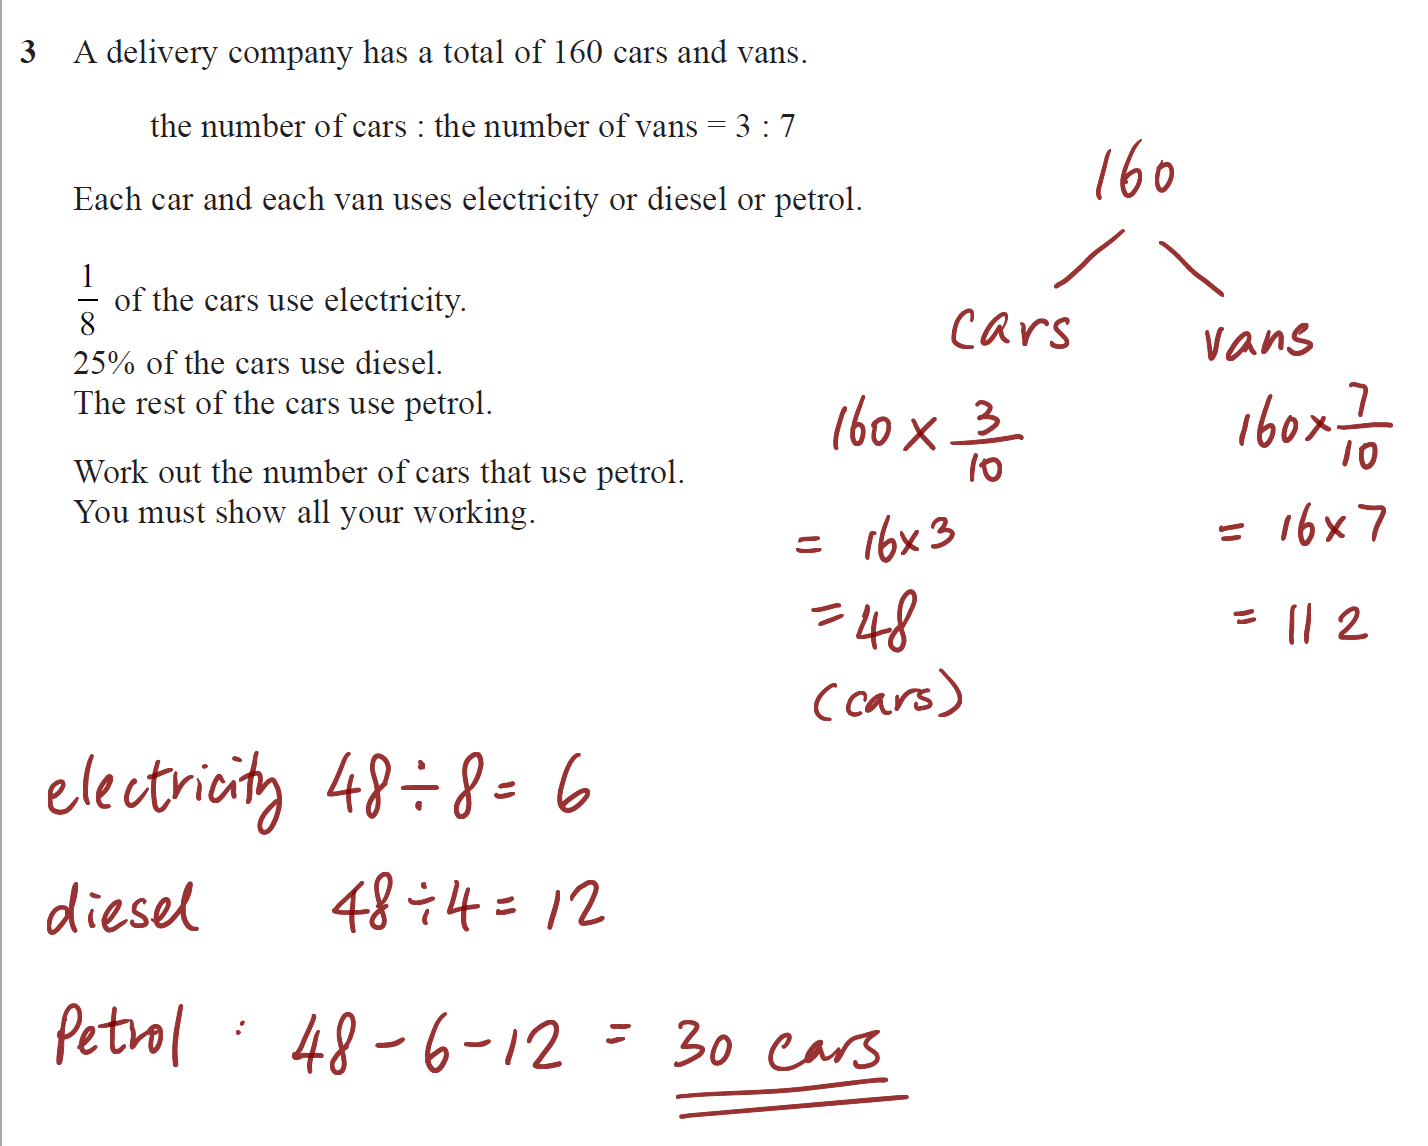 3 A delivery company has a total of 160 cars and vans.
the number of cars : the number of vans = 3 : 7
Each car and each van uses electricity or diesel or petrol.
1/8 of the cars use electricity.
25% of the cars use diesel.
The rest of the cars use petrol.
Work out the number of cars that use petrol.
You must show all your working.
160
cars
160 × 3/10
= 16×3
= 48
(cars)
vans
160 × 7/10
= 16×7
= 112
electricity 48 ÷ 8 = 6
diesel 48 ÷ 4 = 12
Petrol : 48 - 6 - 12 = 30 cars